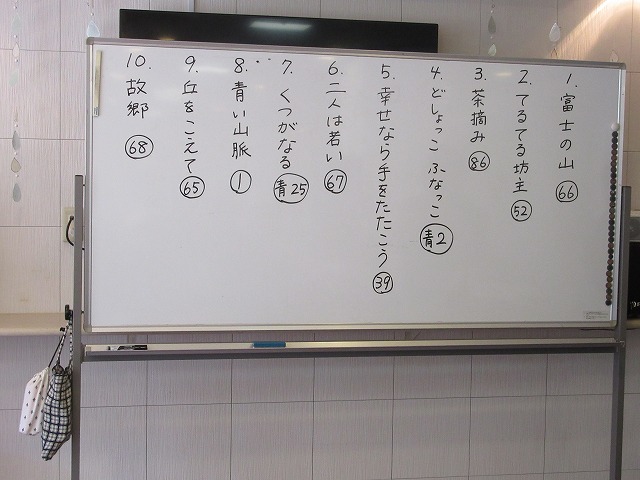 1. 富士の山 66
2. てるてる坊主 52
3. 茶摘み 86
4. どしょっこ ふなっこ 青2
5. 幸せなら手をたたこう 39
6. 二人は若い 67
7. くつがなる 青25
8. 青い山脈 1
9. 丘をこえて 65
10. 故郷 68